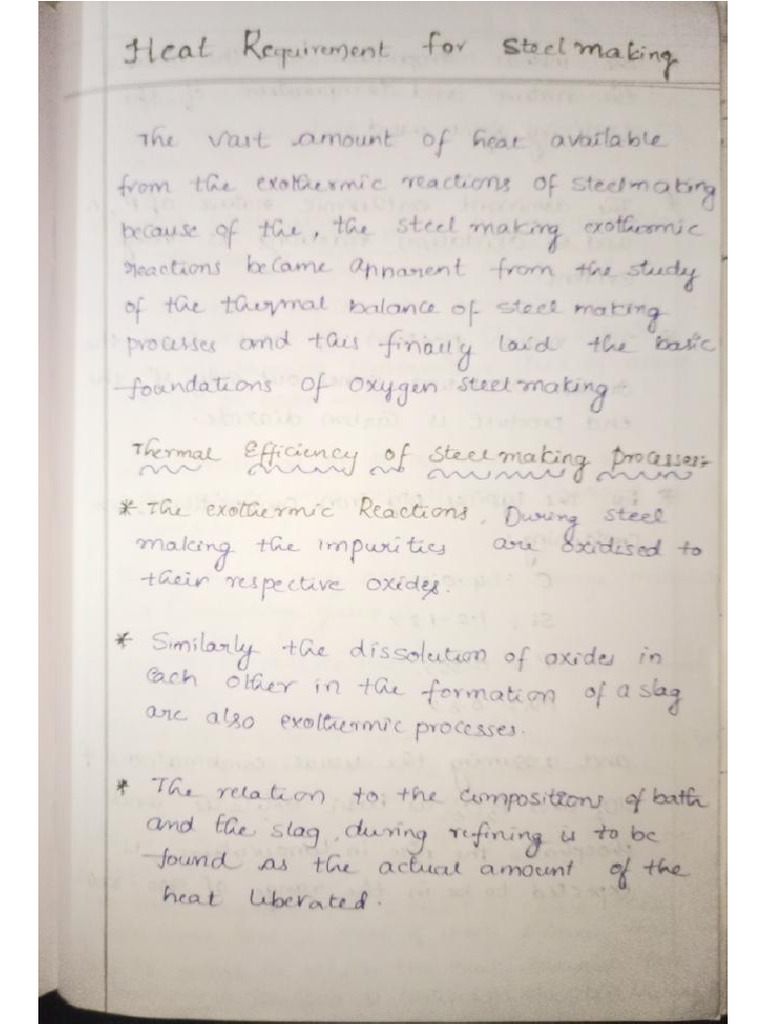 Heat Requirement for Steelmaking
The vast amount of heat available
from the exothermic reactions of steelmaking
because of the, the steel making exothromic
reactions became apparent from the study
of the thermal balance of steel making
processes and this finally laid the basic
foundations of oxygen steelmaking
Thermal Efficiency of steelmaking processes:-
* The exothermic Reactions. During steel
making the impurities are oxidised to
their respective oxides.
* Similarly the dissolution of oxides in
each other in the formation of a slag
are also exothermic processes.
* The relation to the compositions of bath
and the slag during refining is to be
found as the actual amount of the
heat liberated.